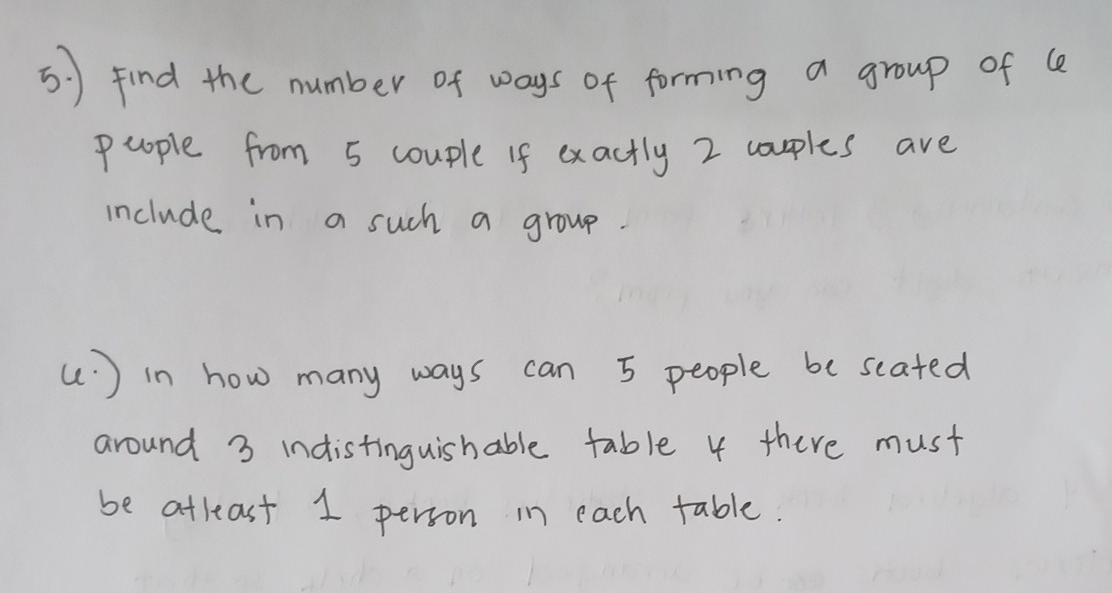 5.) Find the number of ways of forming a group of 6
people from 5 couple if exactly 2 couples are
include in a such a group.
6.) in how many ways can 5 people be seated
around 3 indistinguishable table if there must
be atleast 1 person in each table.